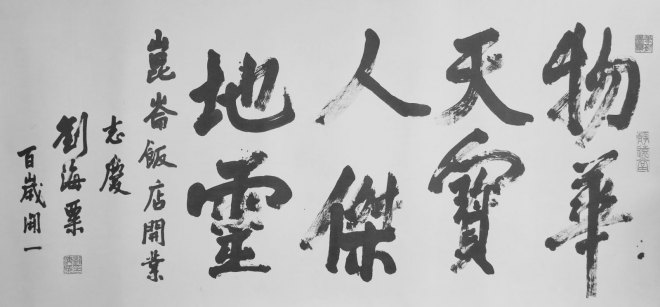 物華
天寶
人傑
地靈
崑崙飯店開業
志慶
劉海粟
百歲開一